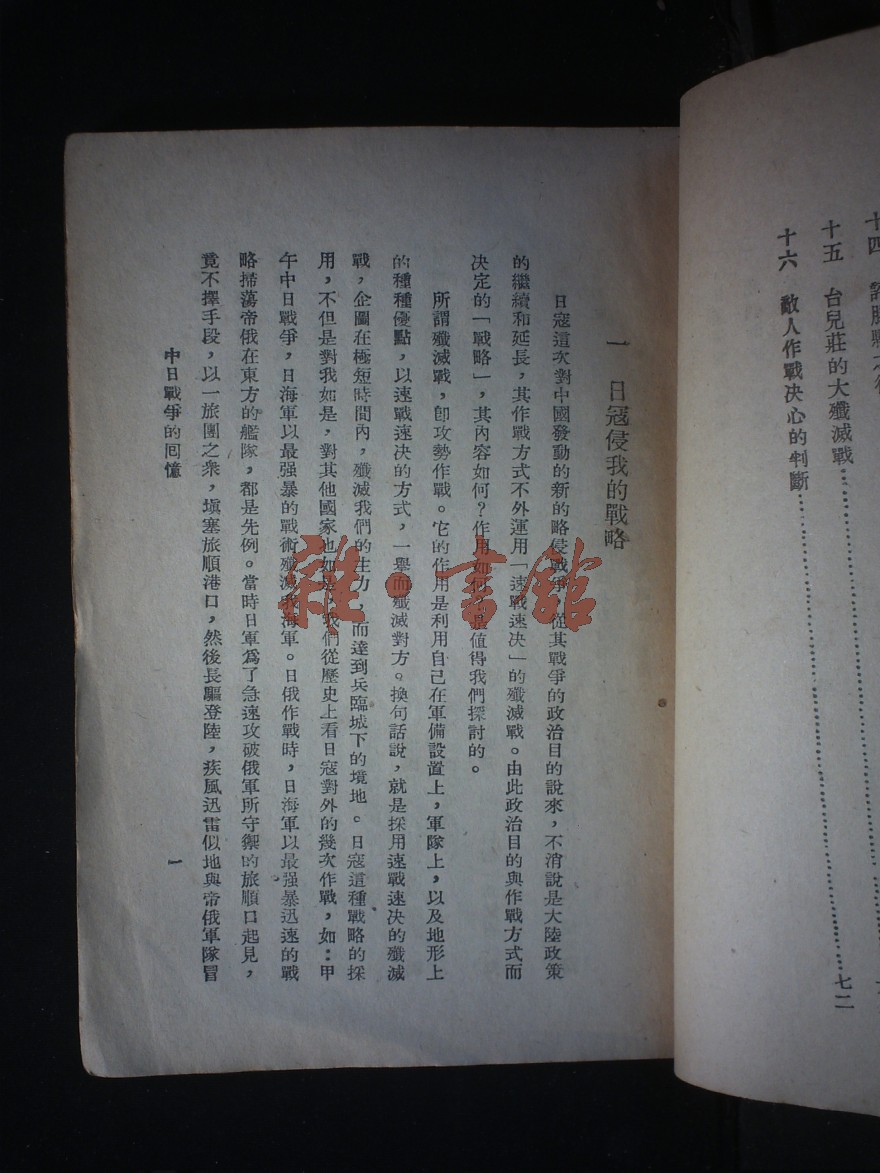 十四
十五　台兒莊的大殲滅戰…………
十六　敵人作戰决心的判斷…………七二
一　日寇侵我的戰略
日寇這次對中國發動的新的略侵戰爭，從其戰爭的政治目的說來，不消說是大陸政策
的繼續和延長，其作戰方式不外運用「速戰速决」的殲滅戰。由此政治目的與作戰方式而
决定的「戰略」，其內容如何？作用如何？是值得我們探討的。
所謂殲滅戰，卽攻勢作戰。它的作用是利用自己在軍備設置上，軍隊上，以及地形上
的種種優點，以速戰速决的方式，一舉而殲滅對方。換句話說，就是採用速戰速决的殲滅
戰，企圖在極短時間內，殲滅我們的主力，而達到兵臨城下的境地。日寇這種戰略的採
用，不但是對我如是，對其他國家也如是，我們從歷史上看日寇對外的幾次作戰，如：甲
午中日戰爭，日海軍以最强暴的戰術殲滅我海軍。日俄作戰時，日海軍以最强暴迅速的戰
略掃蕩帝俄在東方的艦隊，都是先例。當時日軍爲了急速攻破俄軍所守禦的旅順口起見，
竟不擇手段，以一旅團之衆，塡塞旅順港口，然後長驅登陸，疾風迅雷似地與帝俄軍隊冒
中日戰爭的囘憶
一
雜·書館